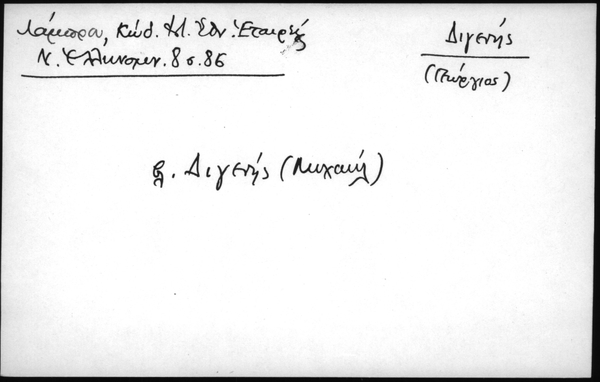 Λάμπρου, Κώδ. Ἱλ. Ἐθν. Ἑταιρείας
Ν. Ἑλληνομν. 8 σ. 86
Διγενής
(Γεώργιος)
βλ. Διγενής (Μιχαήλ)